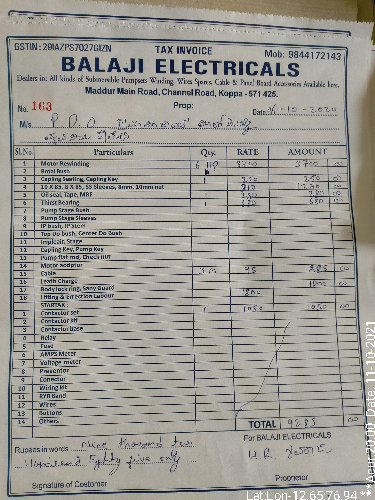 GSTIN : 29IAZPS7027G1ZN TAX INVOICE Mob: 9844172143
BALAJI ELECTRICALS
Dealers in: All kinds of Submersible Pumpsets Winding, Wires Spares, Cable & Panel Board Accessories Available here.
Maddur Main Road, Channel Road, Koppa - 571 425.
No. 163 Prop: Date 16-10-2020
M/s P. D. O
Sl.No. Particulars Qty. RATE AMOUNT
1 Motor Rewinding 6 HP 3700 00
2 Botal Bush
3 Capling Searling, Capling Key 1 250 250 00
4 10 X 85, 8 X 85, SS Sleeves, 8mm, 10mm nut
5 Oil seal, Tape, MRF
6 Thist Bearing 1 680 680 00
7 Pump Stage Bush
8 Pump Stage Sleeves
9 IP bush, IP Stem
10 Top Do bush, Center Do Bush
11 Impleair, Stage
12 Capling Key, Pump Key
13 Pump flat rod, Check nut
14 Motor adoptor
15 Cable 3 M 95 285 00
16 Leath Charge
17 Body lock ring, Sany Guard
18 Lifting & Errection Labour
STARTAR :
1 Contactor set 1 1050 1050 00
2 Contactor kit
3 Contactor base
4 Relay
5 Fuse
6 AMPS Meter
7 Voltage meter
8 Preventor
9 Conector
10 Wiring kit
11 RYB Band
12 Wires
13 Buttons
14 Others TOTAL 9285 00
Rupees in words Nine thousand two For BALAJI ELECTRICALS
Hundred Eighty five only
Signature of Customer
Lat Lon-12.6576 94 ***
Date: 11-10-2021